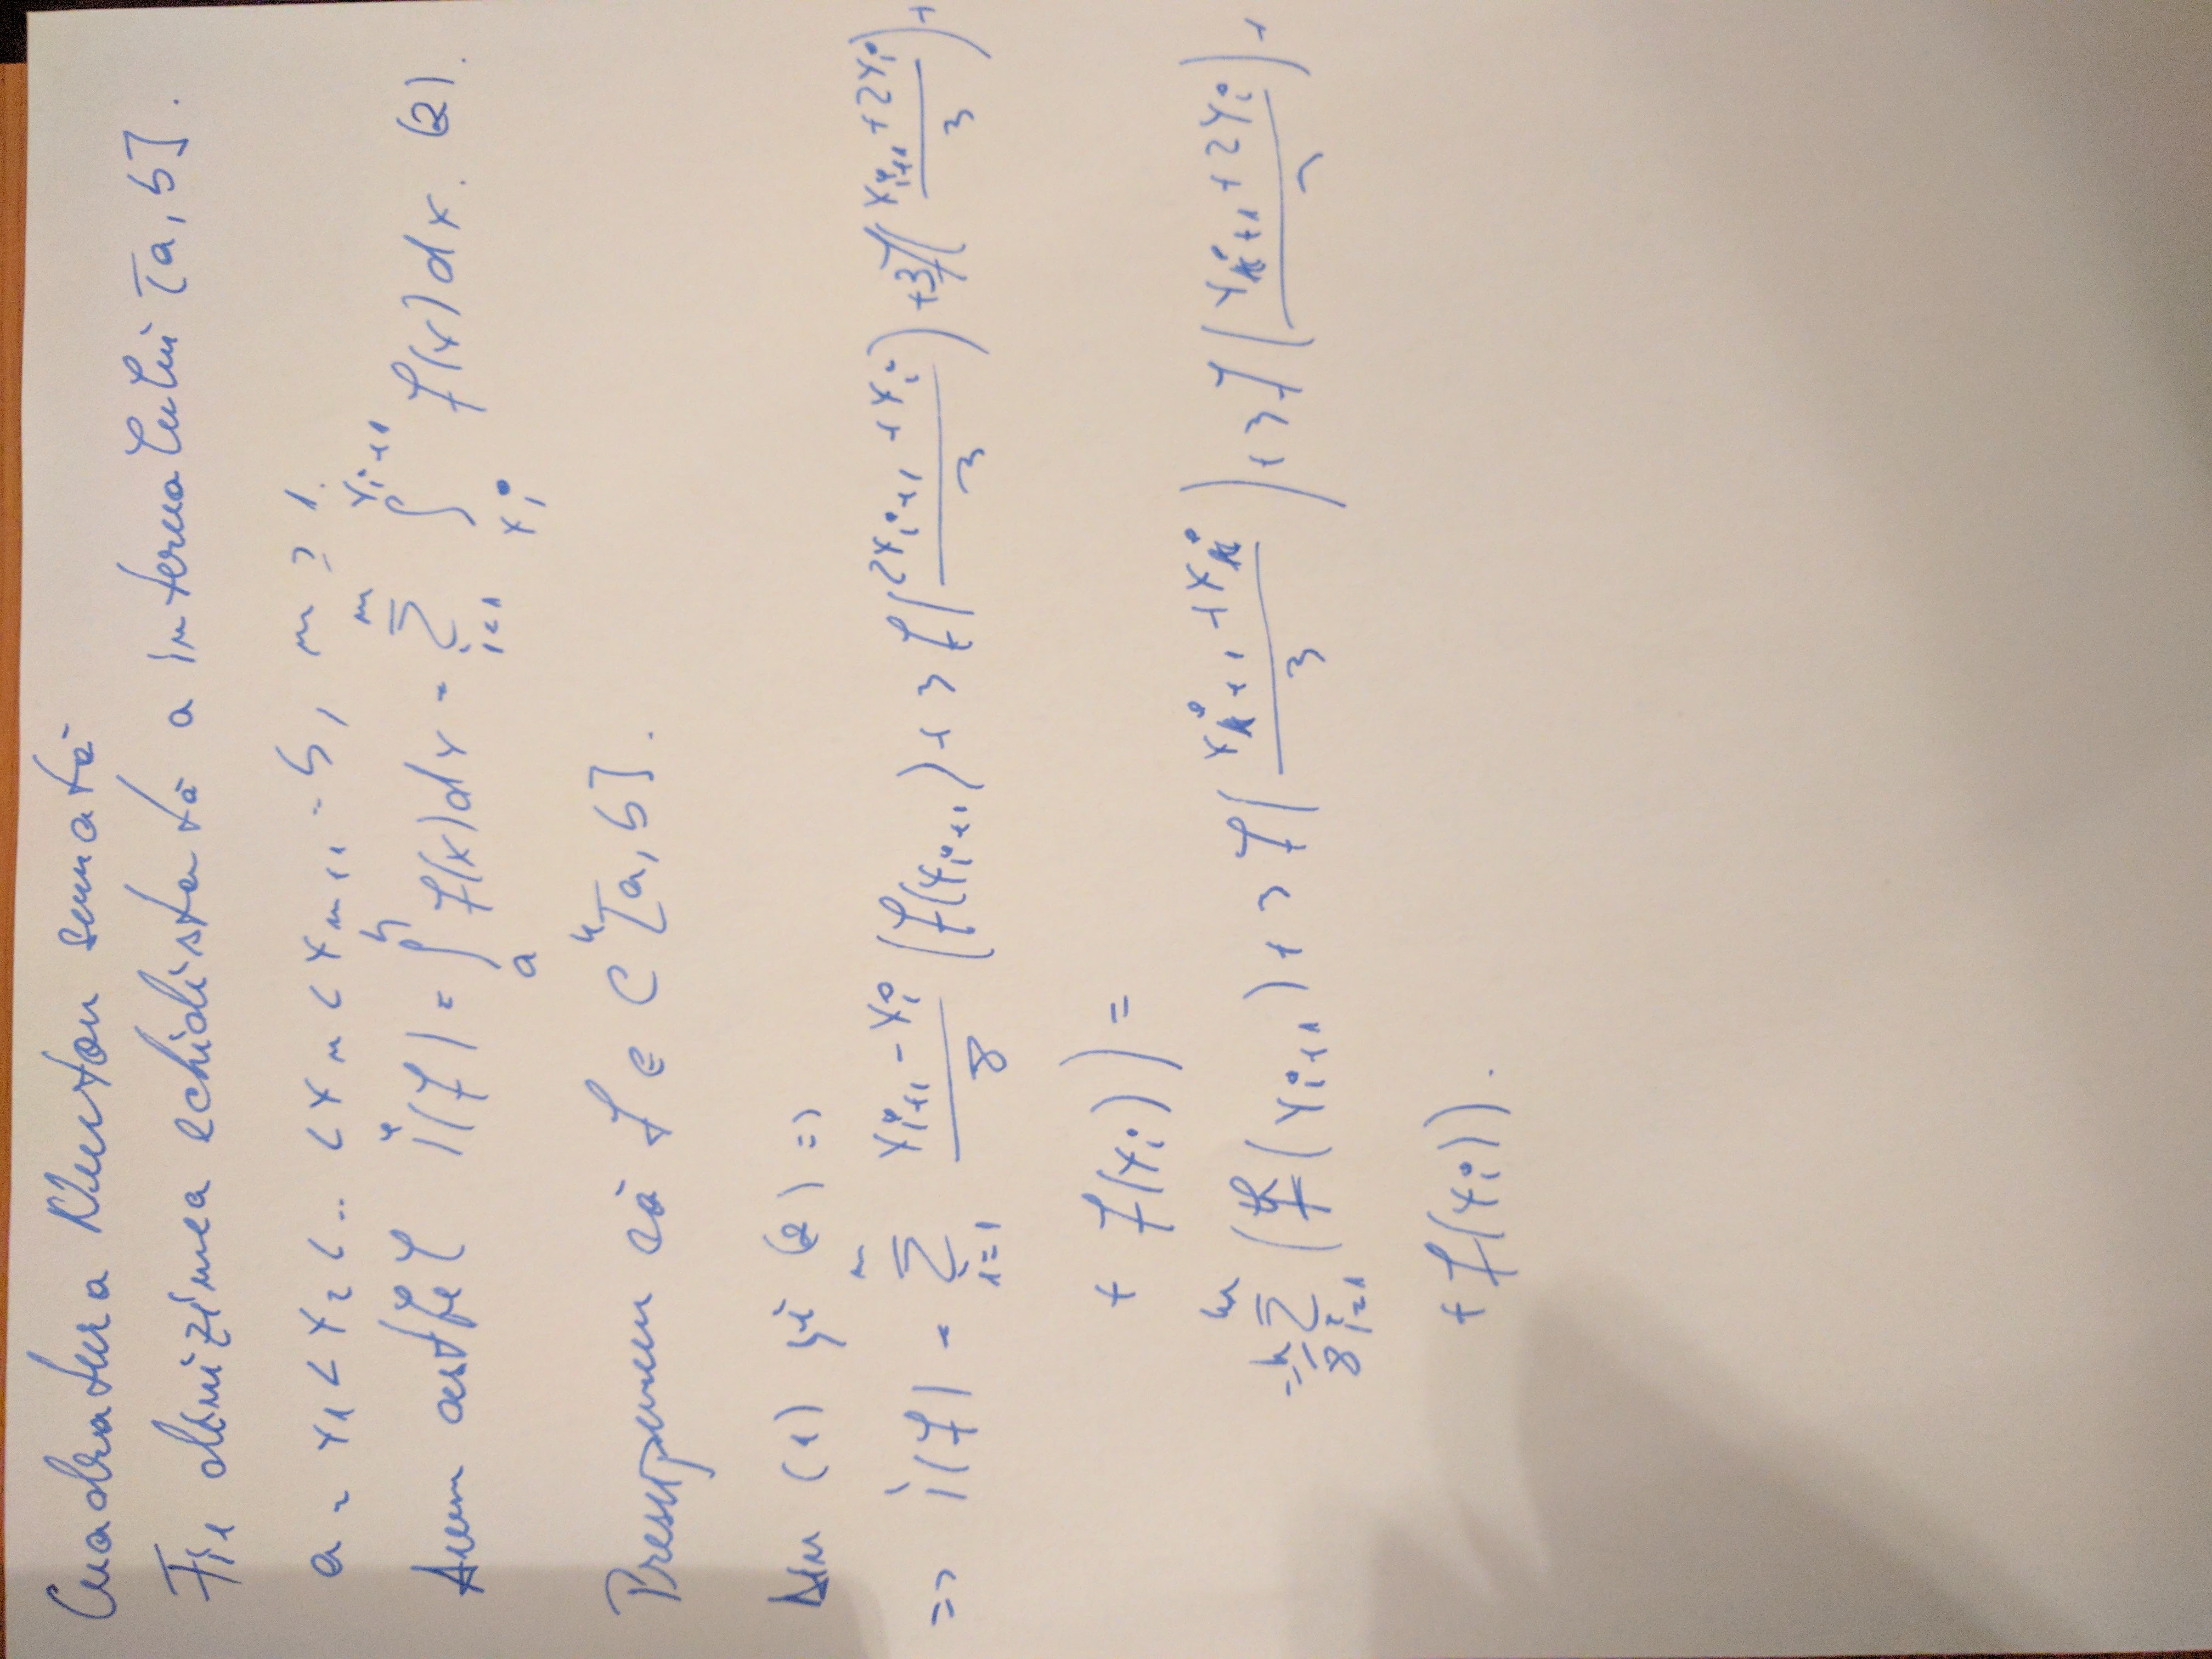 Cuadratura Newton sumată
Fie diviziunea echidistantă a intervalului [a, b].
a = x₁ < x₂ < ... < xₘ < xₘ₊₁ = b, m ≥ 1.
Avem astfel I(f) = ∫ₐᵇ f(x)dx = Σᵢ₌₁ᵐ ∫_{xᵢ}^{xᵢ₊₁} f(x)dx. (2).
Presupunem că f ∈ C⁴[a, b].
Din (1) și (2) =>
=> I(f) = Σᵢ₌₁ᵐ (xᵢ₊₁ - xᵢ)/8 (f(xᵢ₊₁) + 3f((2xᵢ₊₁ + xᵢ)/3) + 3f((xᵢ₊₁ + 2xᵢ)/3) +
+ f(xᵢ)) =
= h/8 Σᵢ₌₁ᵐ (f(xᵢ₊₁) + 3f((xᵢ₊₁ + xᵢ)/3) + 3f((xᵢ₊₁ + 2xᵢ)/3) +
+ f(xᵢ)).